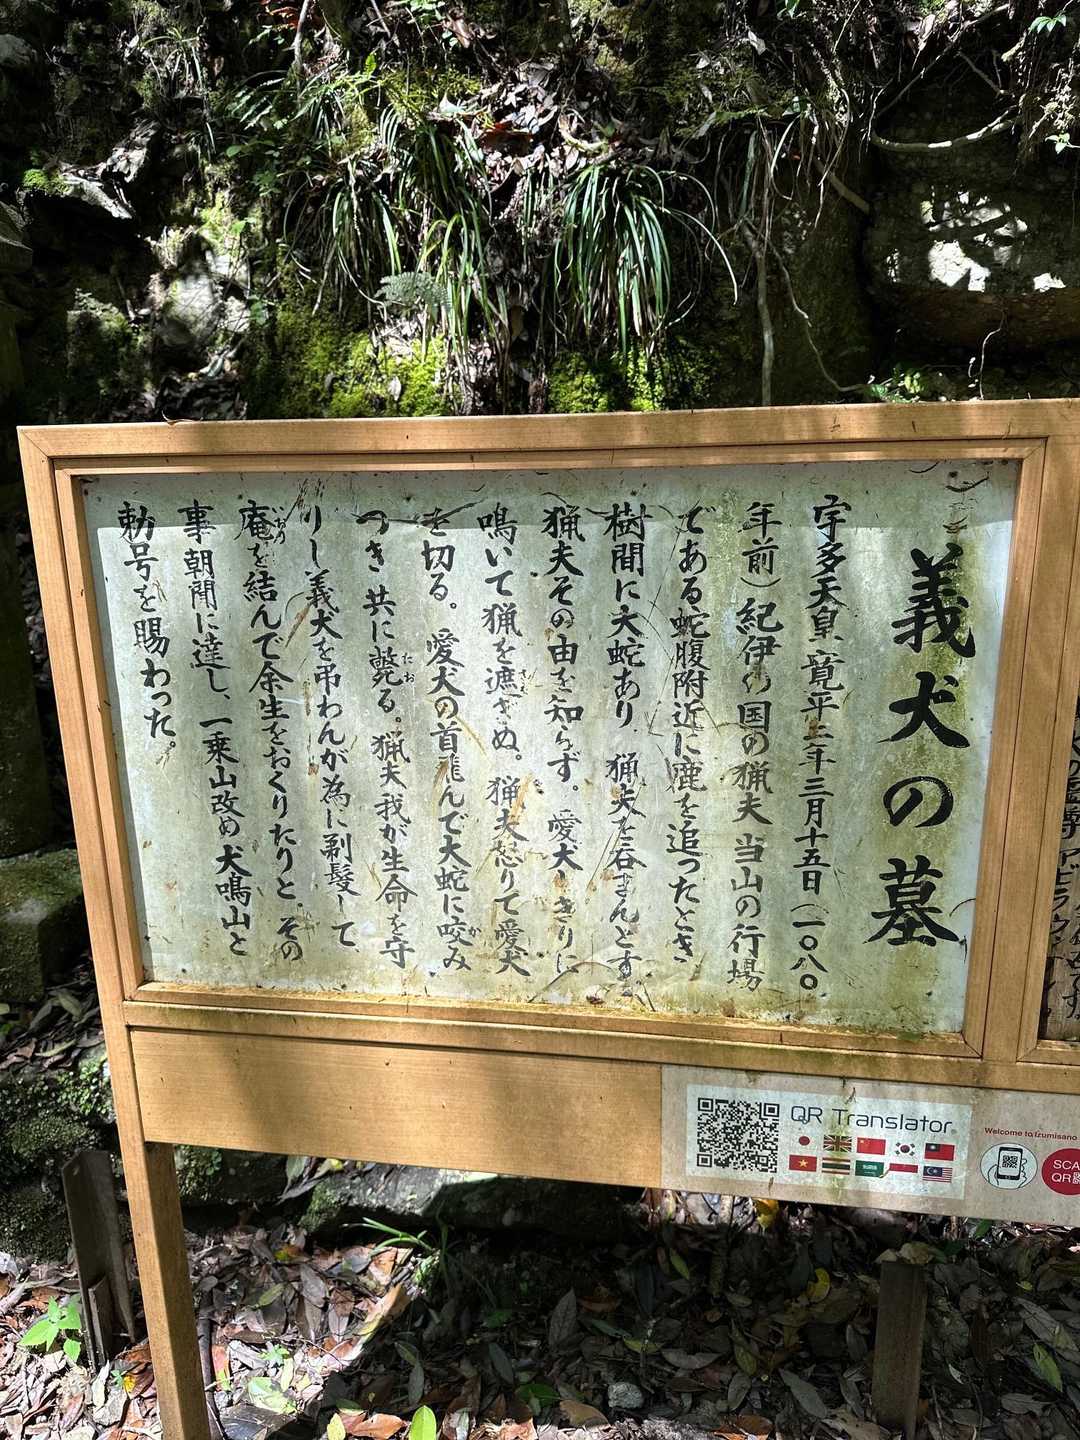 義犬の墓
宇多天皇、寛平二年三月十五日（一〇八〇
年前）紀伊の国の猟夫 当山の行場
である蛇腹附近に鹿を追ったとき
樹間に大蛇あり、猟夫を呑まんとす
猟夫その由を知らず。愛犬しきりに
鳴いて猟を遮ぎぬ。猟夫怒りて愛犬
を切る。愛犬の首飛んで大蛇に咬み
つき共に斃る。猟夫我が生命を守
りし義犬を弔わんが為に剃髪して
庵を結んで余生をおくりたりと、その
事朝聞に達し、一乗山改め犬鳴山と
勅号を賜わった。
さえ
か
たお
いおり
QR Translator
Welcome to Izumisano
SCA
QR